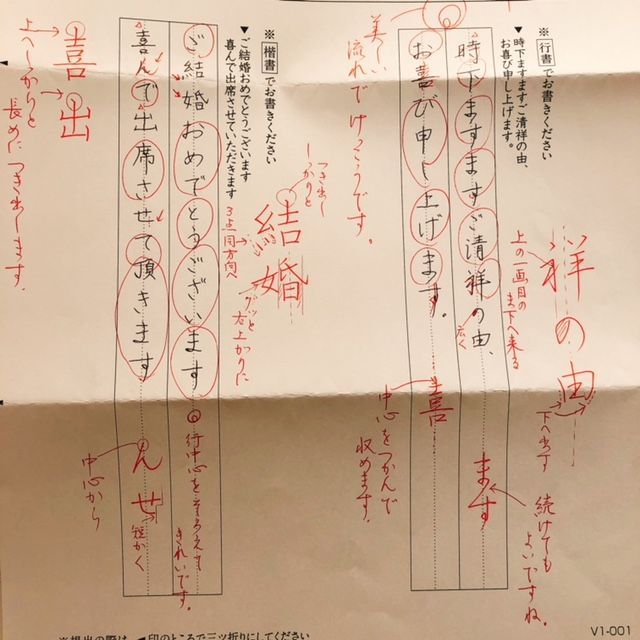 ※行書でお書きください
▼時下ますますご清祥の由、
お喜び申し上げます。
時下ますますご清祥の由、
お喜び申し上げます。
祥の由
上の一画目の
ま下へ来る
広く
下へ出す
ます
続けても
よいですね。
喜
中心をつかんで
収めます。
美しい
流れで けっこうです。
※楷書でお書きください
▼ご結婚おめでとうございます
喜んで出席させていただきます
ご結婚おめでとうございます
喜んで出席させて頂きます
結婚
つき出し
しっかりと
3点同方向へ
グッと
右上がりに
行中心をそろえも
きれいです。
んせ
中心から
短かく
喜出
上へしっかりと
長めにつき出します。
※提出の際は、◀印のところで三ツ折りにしてください
V1-001